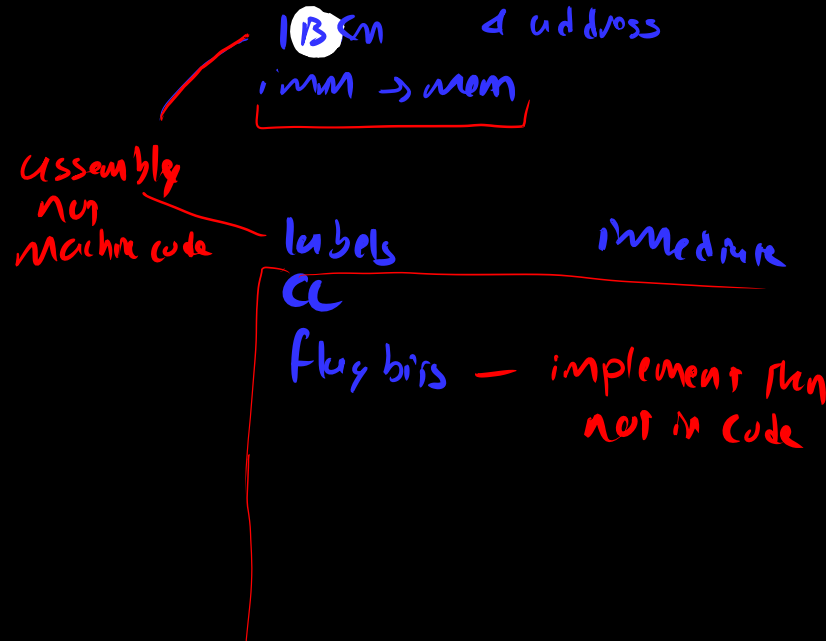 & address
imm → mem
assembly
non
machine code
labels immediate
CC
flag bits — implement then
not in code